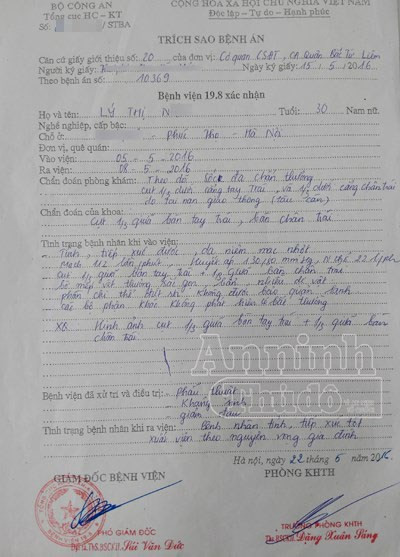 BỘ CÔNG AN
Tổng cục HC - KT
Số: /STBA
CỘNG HÒA XÃ HỘI CHỦ NGHĨA VIỆT NAM
Độc lập - Tự do - Hạnh phúc
TRÍCH SAO BỆNH ÁN
Căn cứ giấy giới thiệu số: 20 của đơn vị: Cơ quan CSĐT, CA Quận Bắc Từ Liêm
Người ký giấy: Ngày ký giấy: 15/5/2016
Theo bệnh án số: 10369
Bệnh viện 19.8 xác nhận
Họ và tên: LÝ THỊ N Tuổi: 30 Nam nữ
Nghề nghiệp, cấp bậc:
Chỗ ở: Phúc Thọ - Hà Nội
Đơn vị, quê quán:
Vào viện: 05 - 5 - 2016
Ra viện: 08 - 5 - 2016
Chẩn đoán phòng khám: Theo dõi sốc đa chấn thương
cụt 1/3 dưới cẳng tay trái, và 1/3 dưới cẳng chân trái
do tai nạn giao thông (tàu cán)
Chẩn đoán của khoa:
Cụt 1/3 giữa bàn tay trái, bàn chân trái
Tình trạng bệnh nhân khi vào viện:
Tỉnh, tiếp xúc được, da niêm mạc nhợt
Mạch 112 lần/phút, Huyết áp 130/80 mmHg, N thở 22 l/ph
Cụt 1/3 giữa bàn tay trái + 1/3 giữa bàn chân trái
bờ mép vết thương nát, nhiều dị vật
phần chi thể đứt rời không được bảo quản lạnh
các bộ phận khác không phát hiện gì bất thường
XQ: Hình ảnh cụt 1/3 giữa bàn tay trái + 1/3 giữa bàn
chân trái
Anninh
Thủ đô
Bệnh viện đã xử trí và điều trị: Phẫu thuật
Kháng sinh
giảm đau
Tình trạng bệnh nhân khi ra viện: Bệnh nhân tỉnh, tiếp xúc tốt
xuất viện theo nguyện vọng gia đình
Hà nội, ngày 22 tháng 6 năm 2016
GIÁM ĐỐC BỆNH VIỆN
PHÒNG KHTH
PHÓ GIÁM ĐỐC
Sái Văn Đức
TRƯỞNG PHÒNG KHTH
Ths.BSCKII. Đặng Xuân Sáng